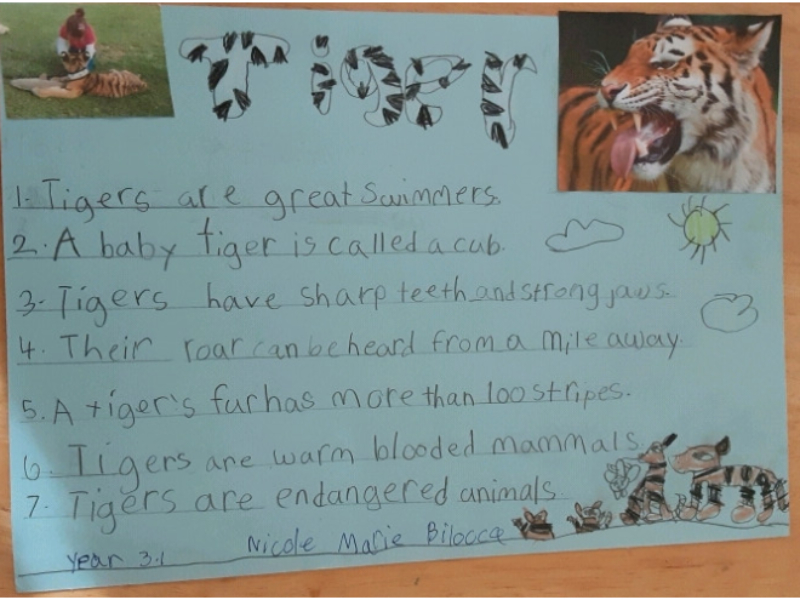 Tiger
1. Tigers are great swimmers.
2. A baby tiger is called a cub.
3. Tigers have sharp teeth and strong jaws.
4. Their roar can be heard from a mile away.
5. A tiger's fur has more than 100 stripes.
6. Tigers are warm blooded mammals.
7. Tigers are endangered animals
Year 3.1 Nicole Marie Bilocca